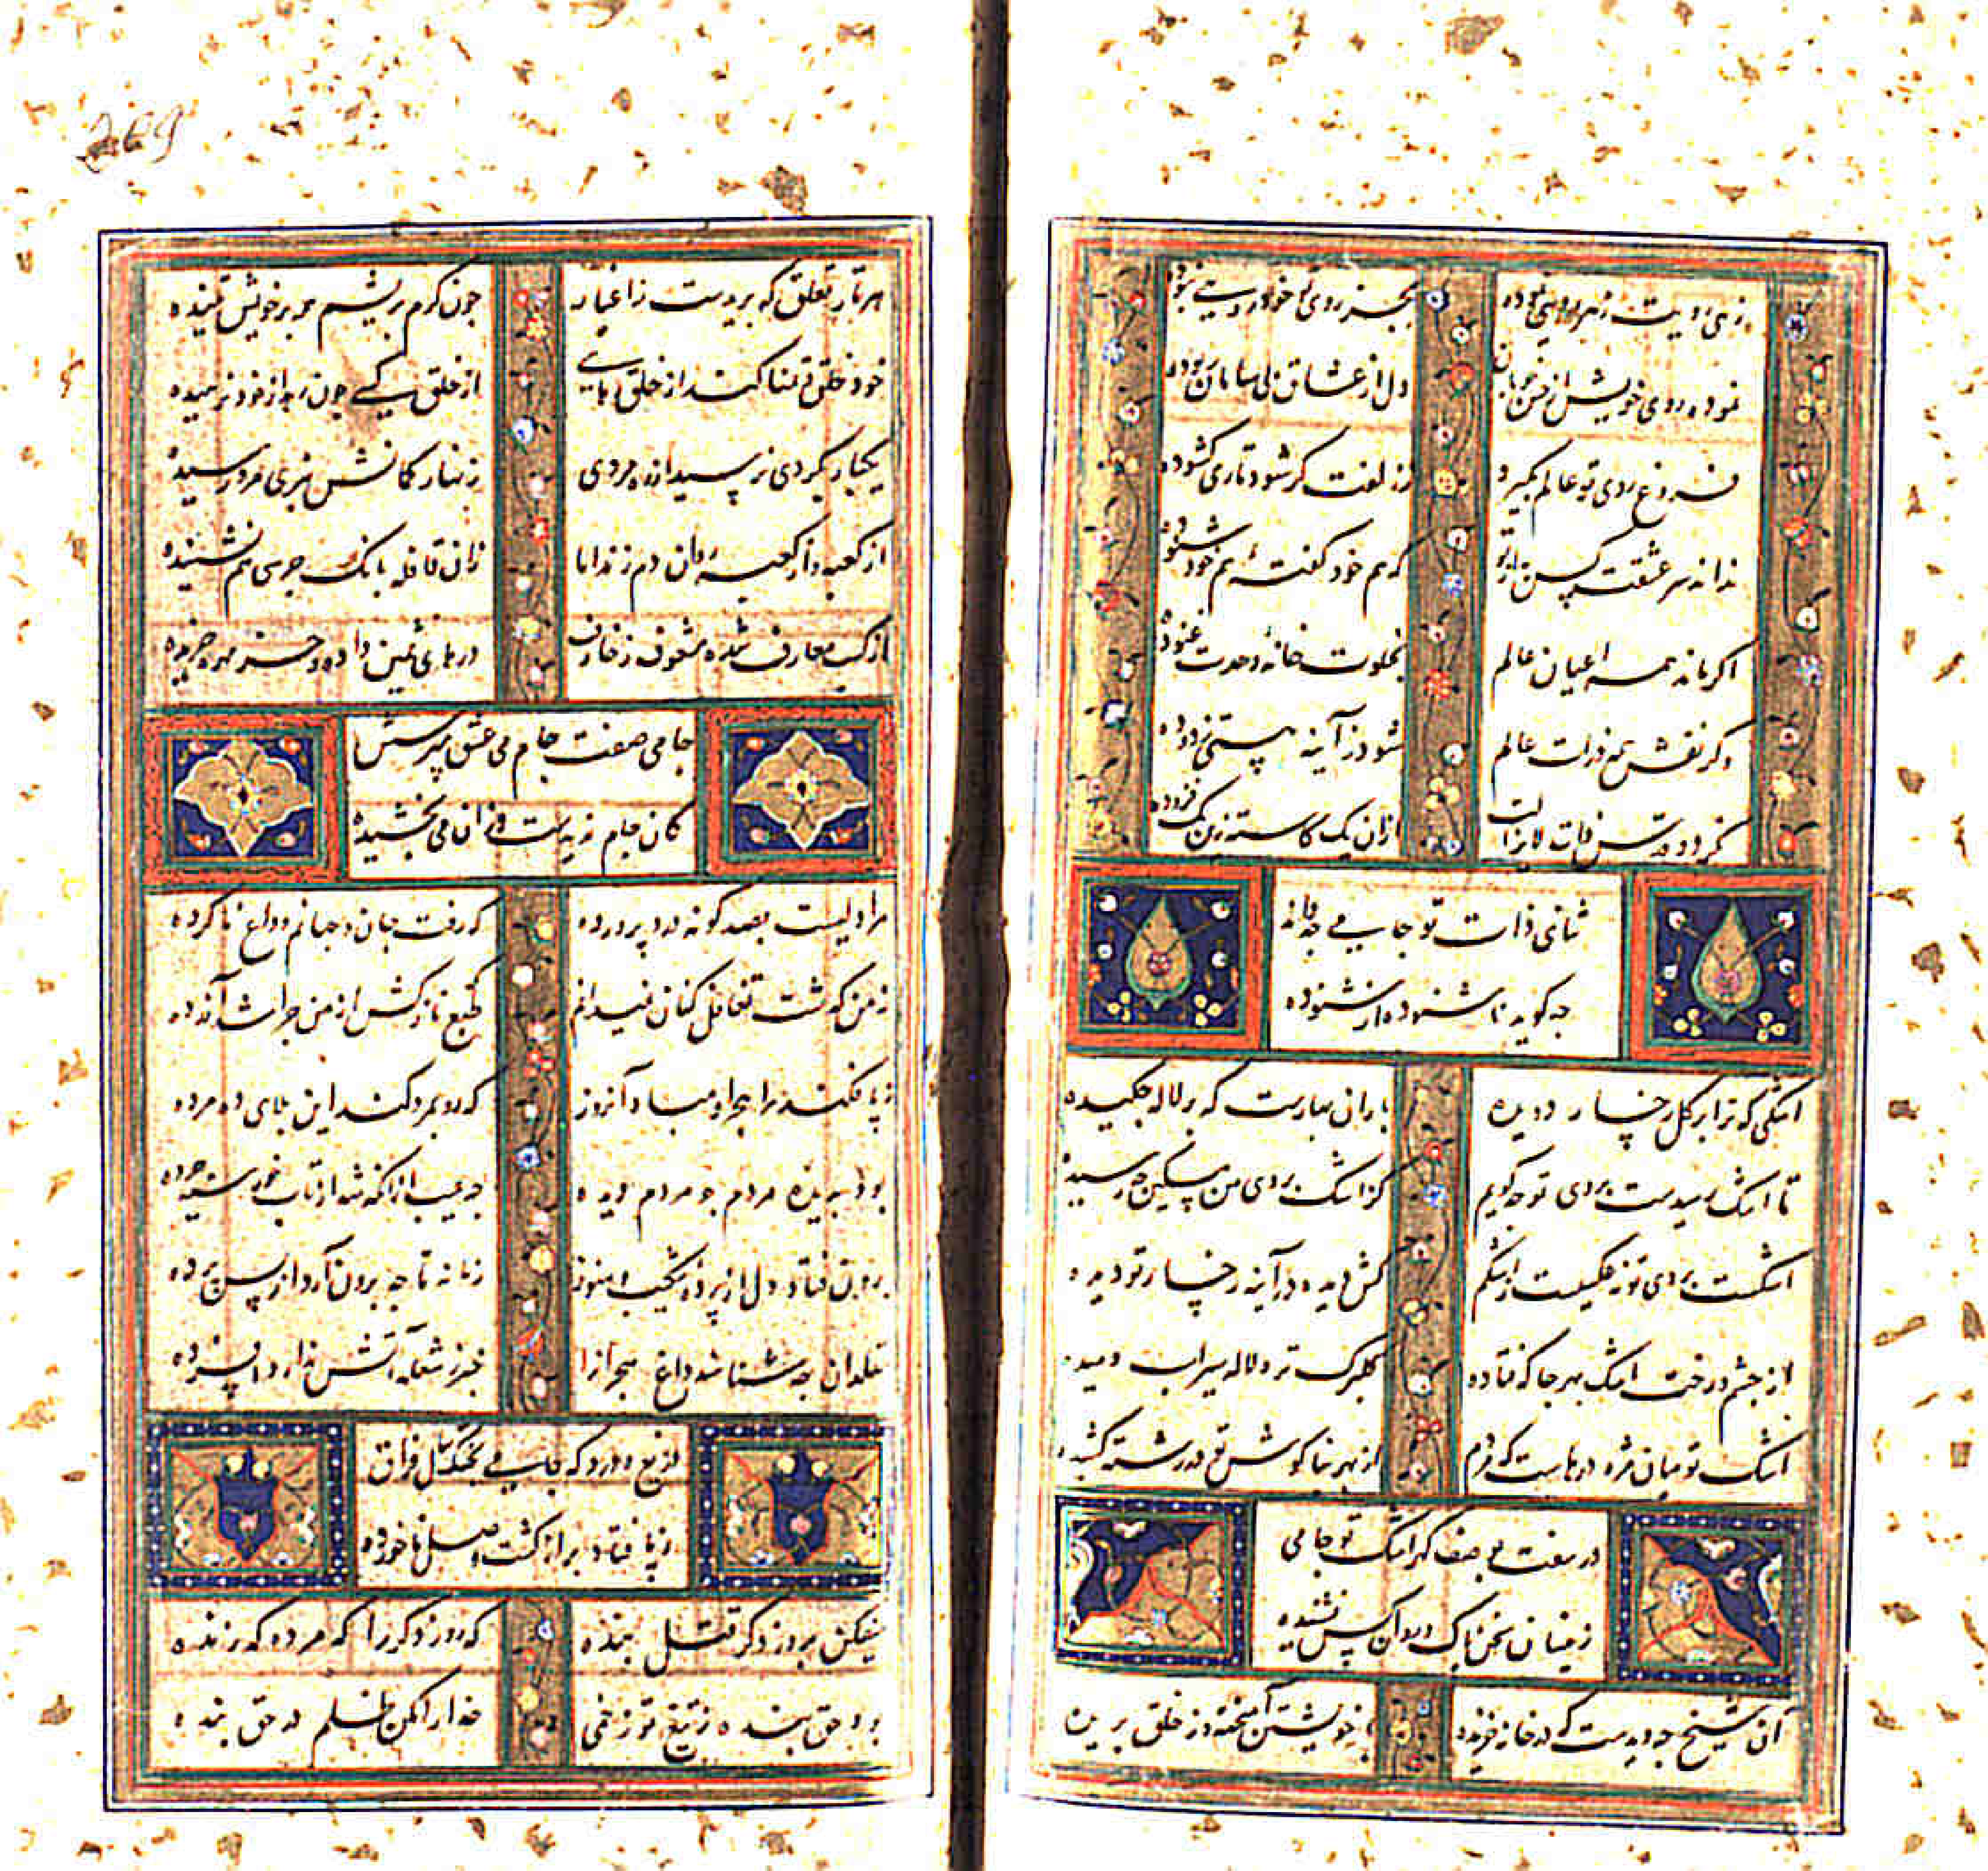 زهی رویت ز هر رو رو نموده بجز روی تو خود رویی نبوده
نموده روی خویش از حسن خوبان دل از عشاق بی سامان ربوده
فروغ روی تو عالم بگیرد ز زلفت گر شود تاری گشوده
نداند سر عشقت کس جز تو که هم خود گفته‌ هم خود شنوده
اگر ماند همه اعیان عالم بخلوت خانه وحدت غنوده
وگر نقش همه ذرات عالم شود ز آینه هستی زدوده
نگردد قدس ذات لایزالت ازان یک کاسته زین یک فزوده
ثنای ذات تو جامی چه داند
چه گوید ناشنوده از شنوده
اشکی که ترا بر گل رخسار دویده باران بهارست که بر لاله چکیده
تا اشک رسیدست بروی تو چه گویم کز اشک بروی من مسکین چه رسیده
اشکست بروی تو نه عکسیست ز اشکم کش دیده در آینه رخسار تو دیده
از چشم و رخت اشک بهر جا که فتاده گلبرگ تر و لاله سیراب دمیده
اشک تو میان مژه درهاست که مردم از بهر بناگوش تو در رشته کشیده
در سفت بوصف گهر اشک تو جامی
زینسان سخن پاک و روان کس نشنیده
آن شیخ چه دیدست که در خانه خزیده با خویشتن آمیخته وز خلق بریده
هر تار تعلق که بریدست ز اغیار چون کرم بریشم همه بر خویش تنیده
خود خلق تمنا کند از خلق رهایی از خلق یکی چون رهد از خود نرهیده
یکبار نگردی نر پسیدازره مردی زنهار گمانش نبری مرد رسیده
از کعبه و از کعبه روان دم زند اما زان قافله بانگ جرسی هم نشنیده
از کسب معارف شده مشعوف زخارف درهای ثمین داده و خرمهره خریده
جامی صفت جام می عشق مپرسش
کان جام مزیدست و از آن می نچشیده
مرا دلیست بصد گونه درد پرورده که رفت جان و جهانم وداع ناکرده
ز من گذشت تغافل کنان نمیدانم که طبع نازکش از من چرا شد آزرده
ز پا فکند مرا هجر او مباد آنروز که رو بمرد کند این بلای ده مرده
بود بدیده مردم چو مردم دیده چه عیب ازانکه شد از تاب خور سیه چرده
برون فتاد دل از پرده شکیب و هنوز زمانه تا چه برون آرد از پس پرده
خلودان چه شناسد داغ هجر ازا خبر ز شعله آتش ندارد افسرده
دریغ و درد که جامی بجنگل فراق
ز پا فتاد بر از کشت وصل ناخورده
میفکن بروز دگر قتل بنده که روز دگر را که مرده که زنده
بود حق بنده ز تیغ تو زخمی خدا را مکن ظلم در حق بنده